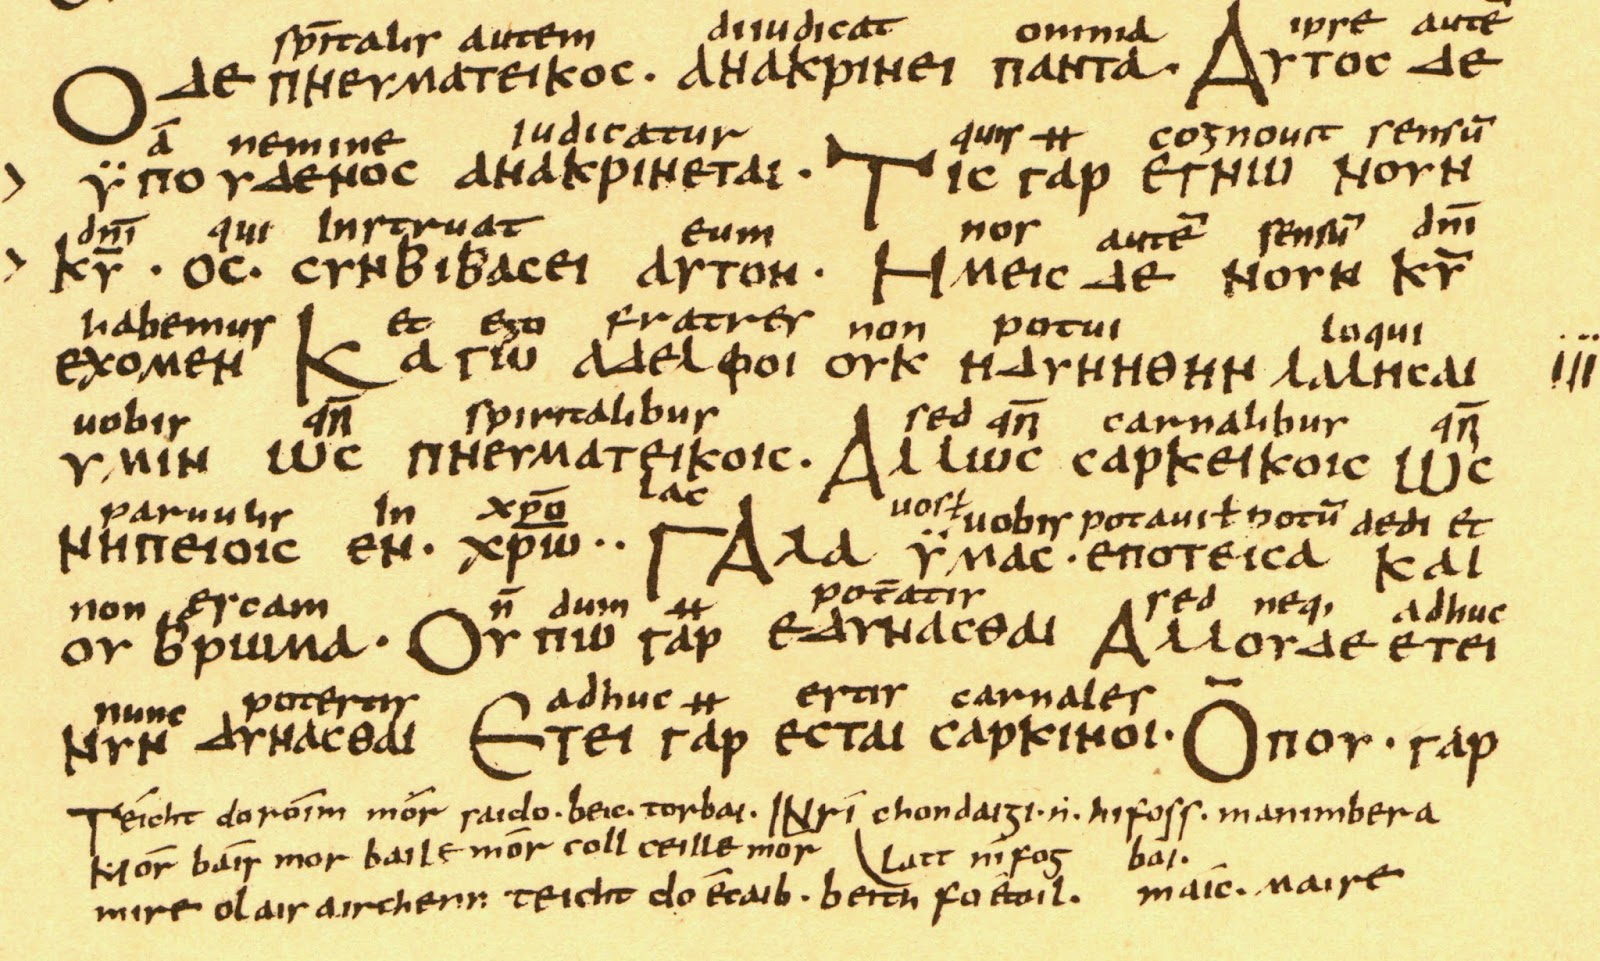 sp̄italis autem diiudicat omnia ipse autē
Ο ΔΕ ΠΝΕΥΜΑΤΕΙΚΟC· ΑΝΑΚΡΙΝΕΙ ΠΑΝΤΑ· ΑΥΤΟC ΔΕ
ā nemine iudicatur quis ⧺ cognouit sensū
ΫΠΟΥΔΕΝΟC ΑΝΑΚΡΙΝΕΤΑΙ· ΤΙC ΓΑΡ ΕΓΝΩ ΝΟΥΝ
dn̄i qui instruat eum nos autē sensū dn̄i
ΚῩ· ΟC· CΥΝΒΙΒΑCΕΙ ΑΥΤΟΝ· ΗΜΕΙC ΔΕ ΝΟΥΝ ΚῩ
habemus et ego fratres non potui loqui
ΕΧΟΜΕΝ ΚΑΓΩ ΑΔΕΛΦΟΙ ΟΥΚ ΗΔΥΝΗΘΗΝ ΛΑΛΗCΑΙ III
uobis qn̄ spiritalibus sed qn̄ carnalibus qn̄
ΥΜΙΝ ΩC ΠΝΕΥΜΑΤΕΙΚΟΙC· ΑΛΛΩC CΑΡΚΕΙΚΟΙC ΩC
paruulis in xp̄o lac uos ł uobis potaui ł potū dedi et
ΝΗΠΕΙΟΙC ΕΝ· ΧΡ̄Ω·· ΓΑΛΑ ΫΜΑC· ΕΠΟΤΕΙCΑ ΚΑΙ
non escam n̄ dum ⧺ potēatis sed neq; adhuc
ΟΥ ΒΡΩΜΑ· ΟΥΠΩ ΓΑΡ ΕΔΥΝΑCΘΑΙ ΑΛΛΟΥΔΕ ΕΤΕΙ
nunc potestis adhuc ⧺ estis carnales
ΝΥΝ ΔΥΝΑCΘΑΙ ΕΤΕΙ ΓΑΡ ΕCΤΑΙ CΑΡΚΙΝΟΙ· ΟΠΟΥ· ΓΑΡ
Téicht doróim mór saido· beic· torbai· INrí chondaigi· ṅ· hifoss· manimbera
latt nífog bái·
Mór báis mor baile mór coll ceille mór
mire olais airchenn teicht do écaib· beith fo étoil· maic· maire